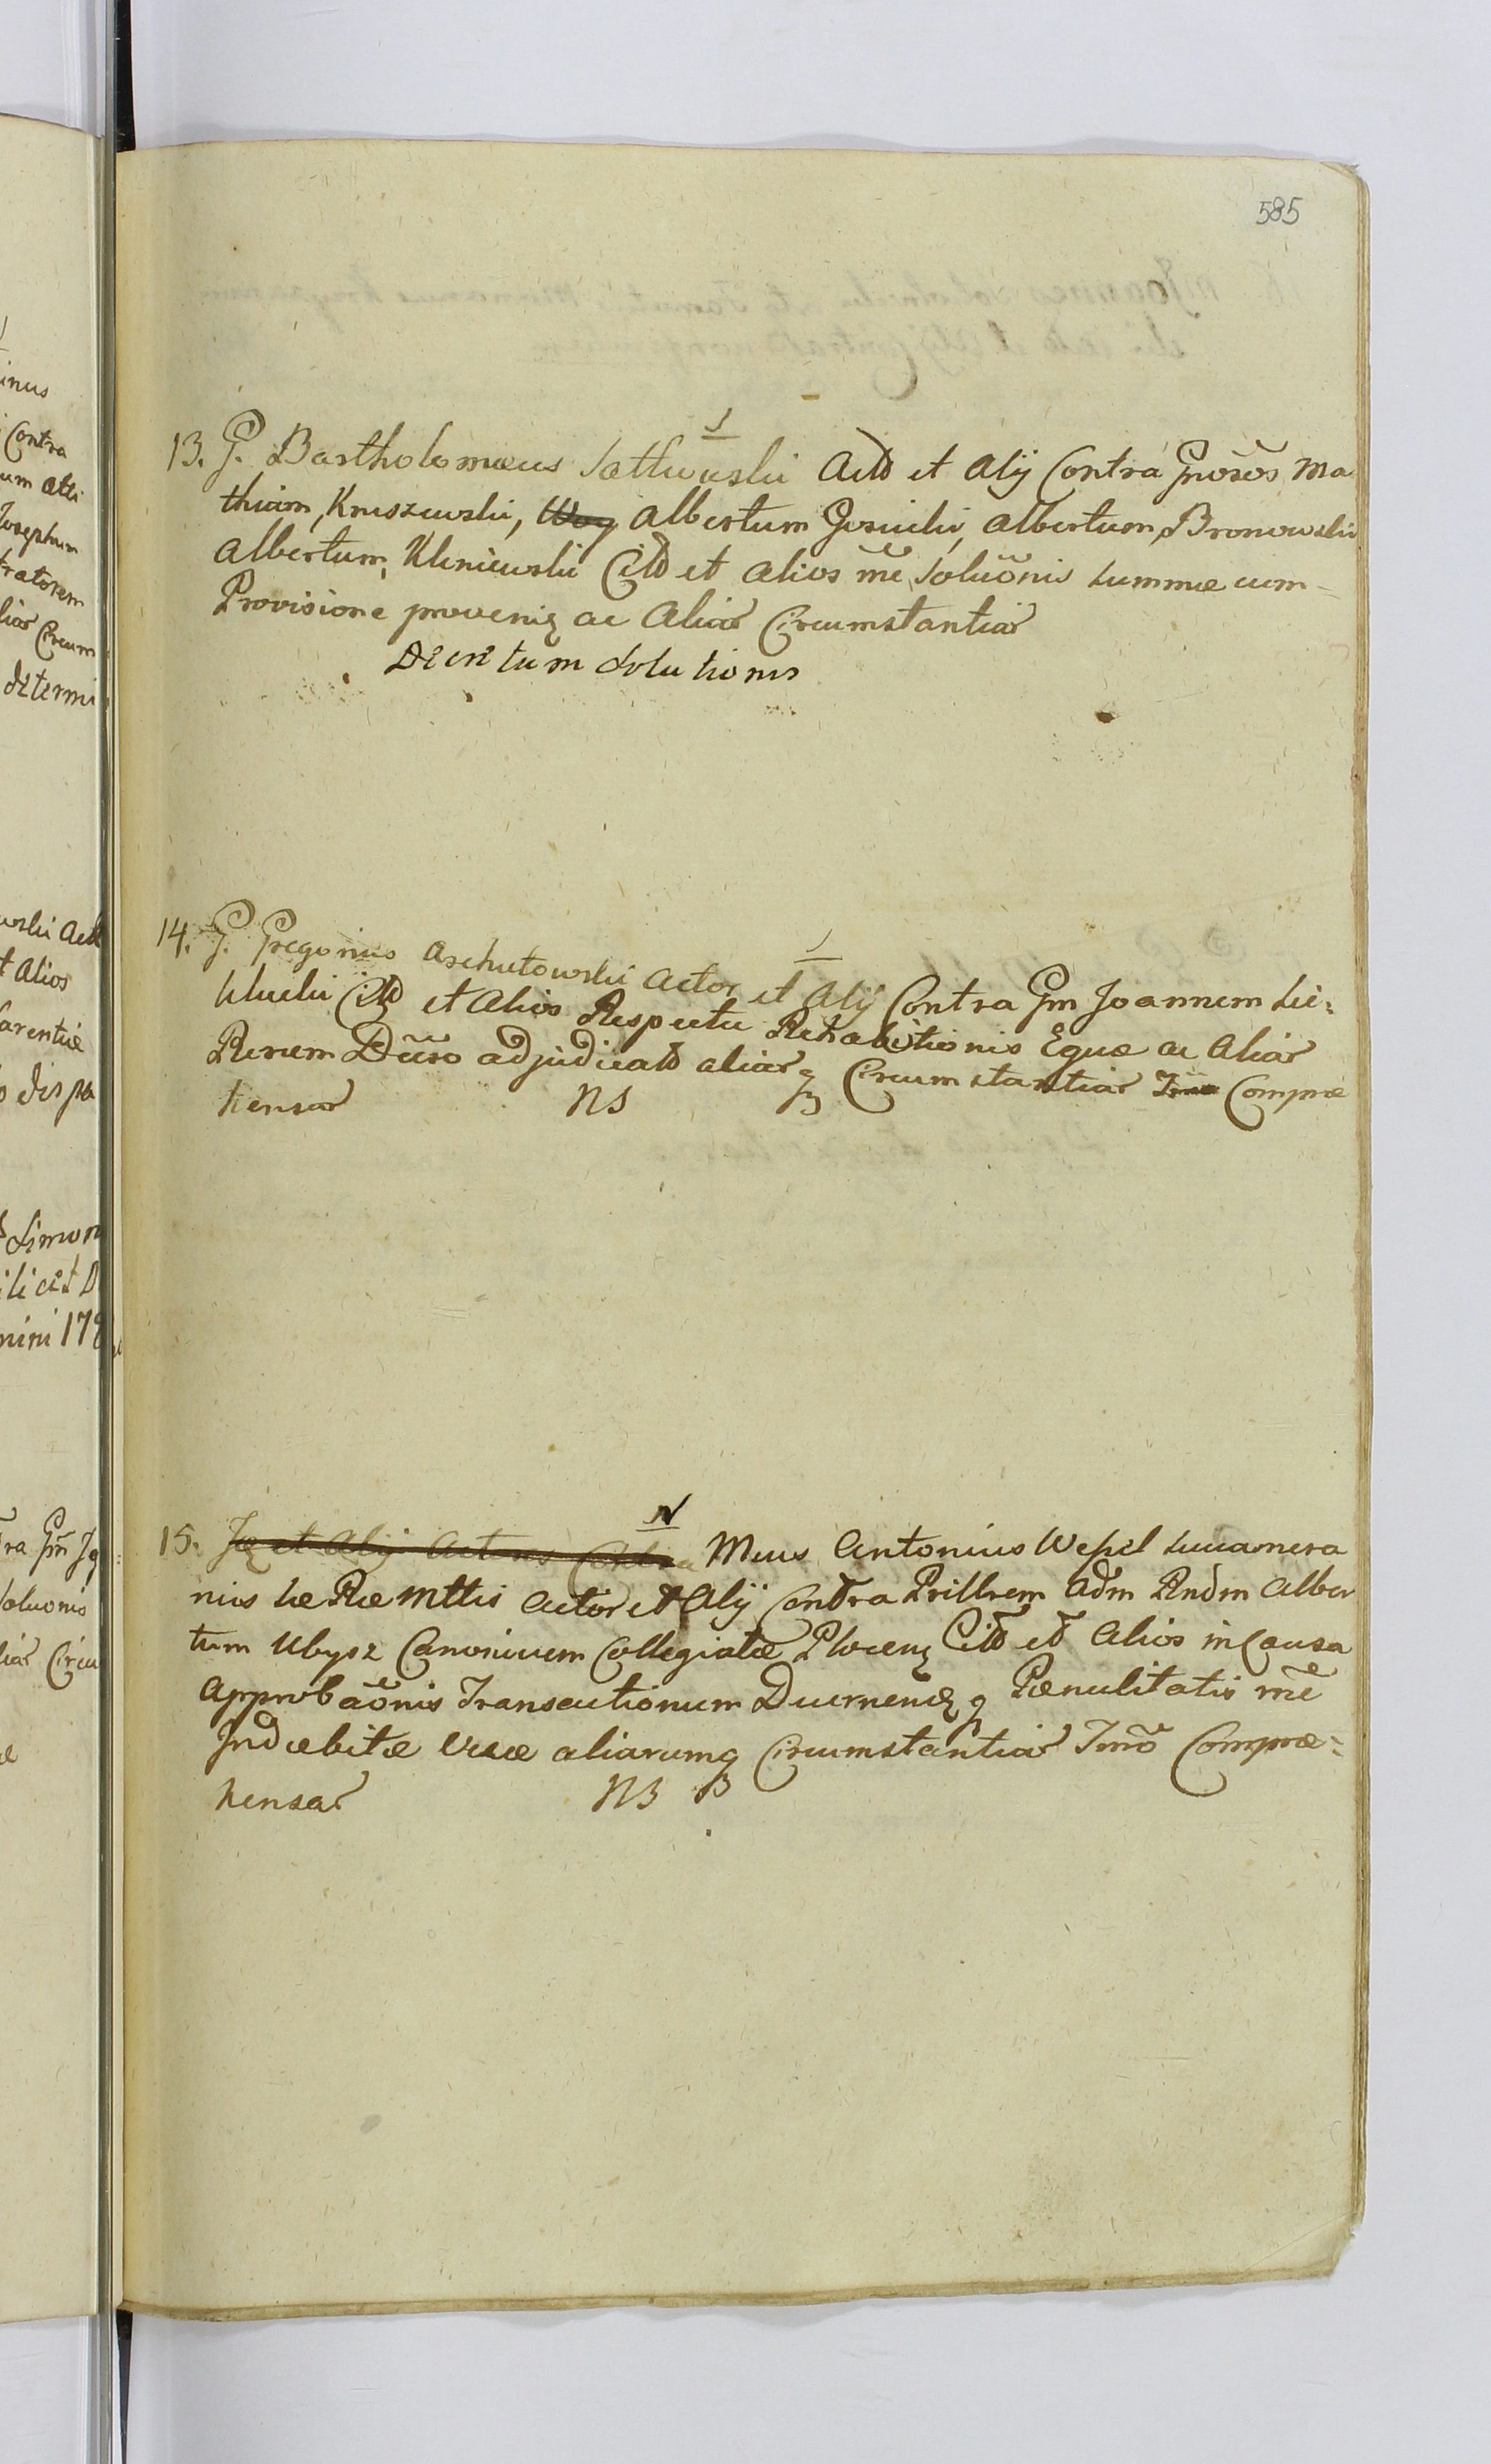 585
13. G. Bartholomæus Sattwuski Actō et Alij Contra Gnōsōs Ma
thiam, Kruszewski, Albertum Gosicki, Albertum, Bronowski
Albertum, Kleniewski Citō et Alios rñe Soluōnis Summæ cum
Provisione provenię ac Aliar Circumstantiar
Decretum Solutionis
14. G. Gregorius Archutowski Actor et Alij Contra Gm Joannem Sie:
klucki Citō et Alios Respectu Rehabitionis Equæ ac Aliar
Rerum Dēcro adjudicatō aliarq Circumstantiar Compræ
hensar NS
15. Je et Alij Actores Contra Mcus Antonius Wessel Succamera
rius Sæ Ræ Mttis Actor et Alij Contra Prillrem Adm Rndm Alber
tum Ubysz Canonicum Collegiatæ Plocenę Citō et Alios in Causa
Approbāōnis Transcutionum Pænulitatis rñe
Indæbitæ aliarumq Circumstantiar Tmō Compræ:
hensar NS
inus
Contra
um
Josephum
ratorem
liar Circum
determi
wski Actō
t Alios
Carentiæ
o dispa
Simon
mini 178
tra Gm Jg
Soluonis
liar Circu